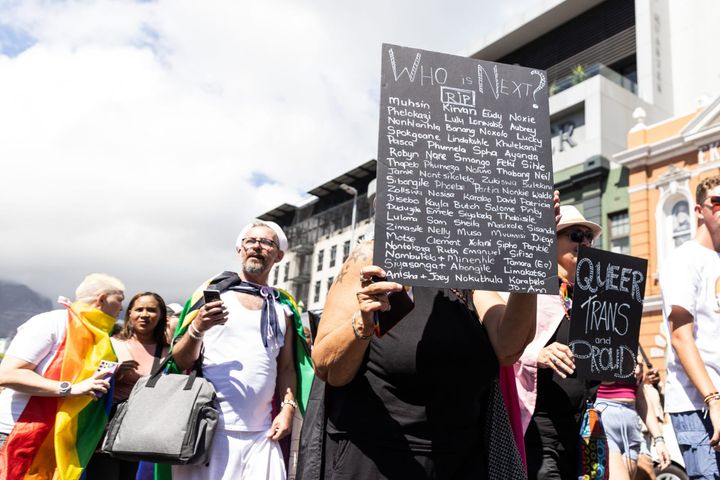 WHO IS NEXT?
RIP
Muhsin Kirvan Eudy Noxie
Phelokazi Lulu Lorwabo Aubrey
Nonhlanhla Banang Noxolo Lucky
Spokgoane Lindokuhle Khulekani
Pasca Phumela Spha Ayanda
Robyn Nare Smango Fetu Sihle
Thapelo Phumeza Nonino Thobang Neil
Jamie Nontsikelelo Zukiswa Buleka
Sibangile Pheobe Portia Nonkie Waldo
Zoliswa Nosisa Karabo David Patricia
Disebo Kayla Butch Salome Pinky
Duduzile Emele Siyakela Thobisile
Luloma Sam Sheila Masixole Sisanda
Zimasile Nelly Musa Mvumisi Diego
Motse Clement Xolani Sipho Pankie
Nontokozo Ruth Emanuel Sifiso
Nambuleko + Minenhle Tamara (Eo)
Siyasanga + Abongile Limakatso
Anisha + Joey Nokuthu Karabelo
Jo-Ann
QUEER
TRANS
and
PROUD